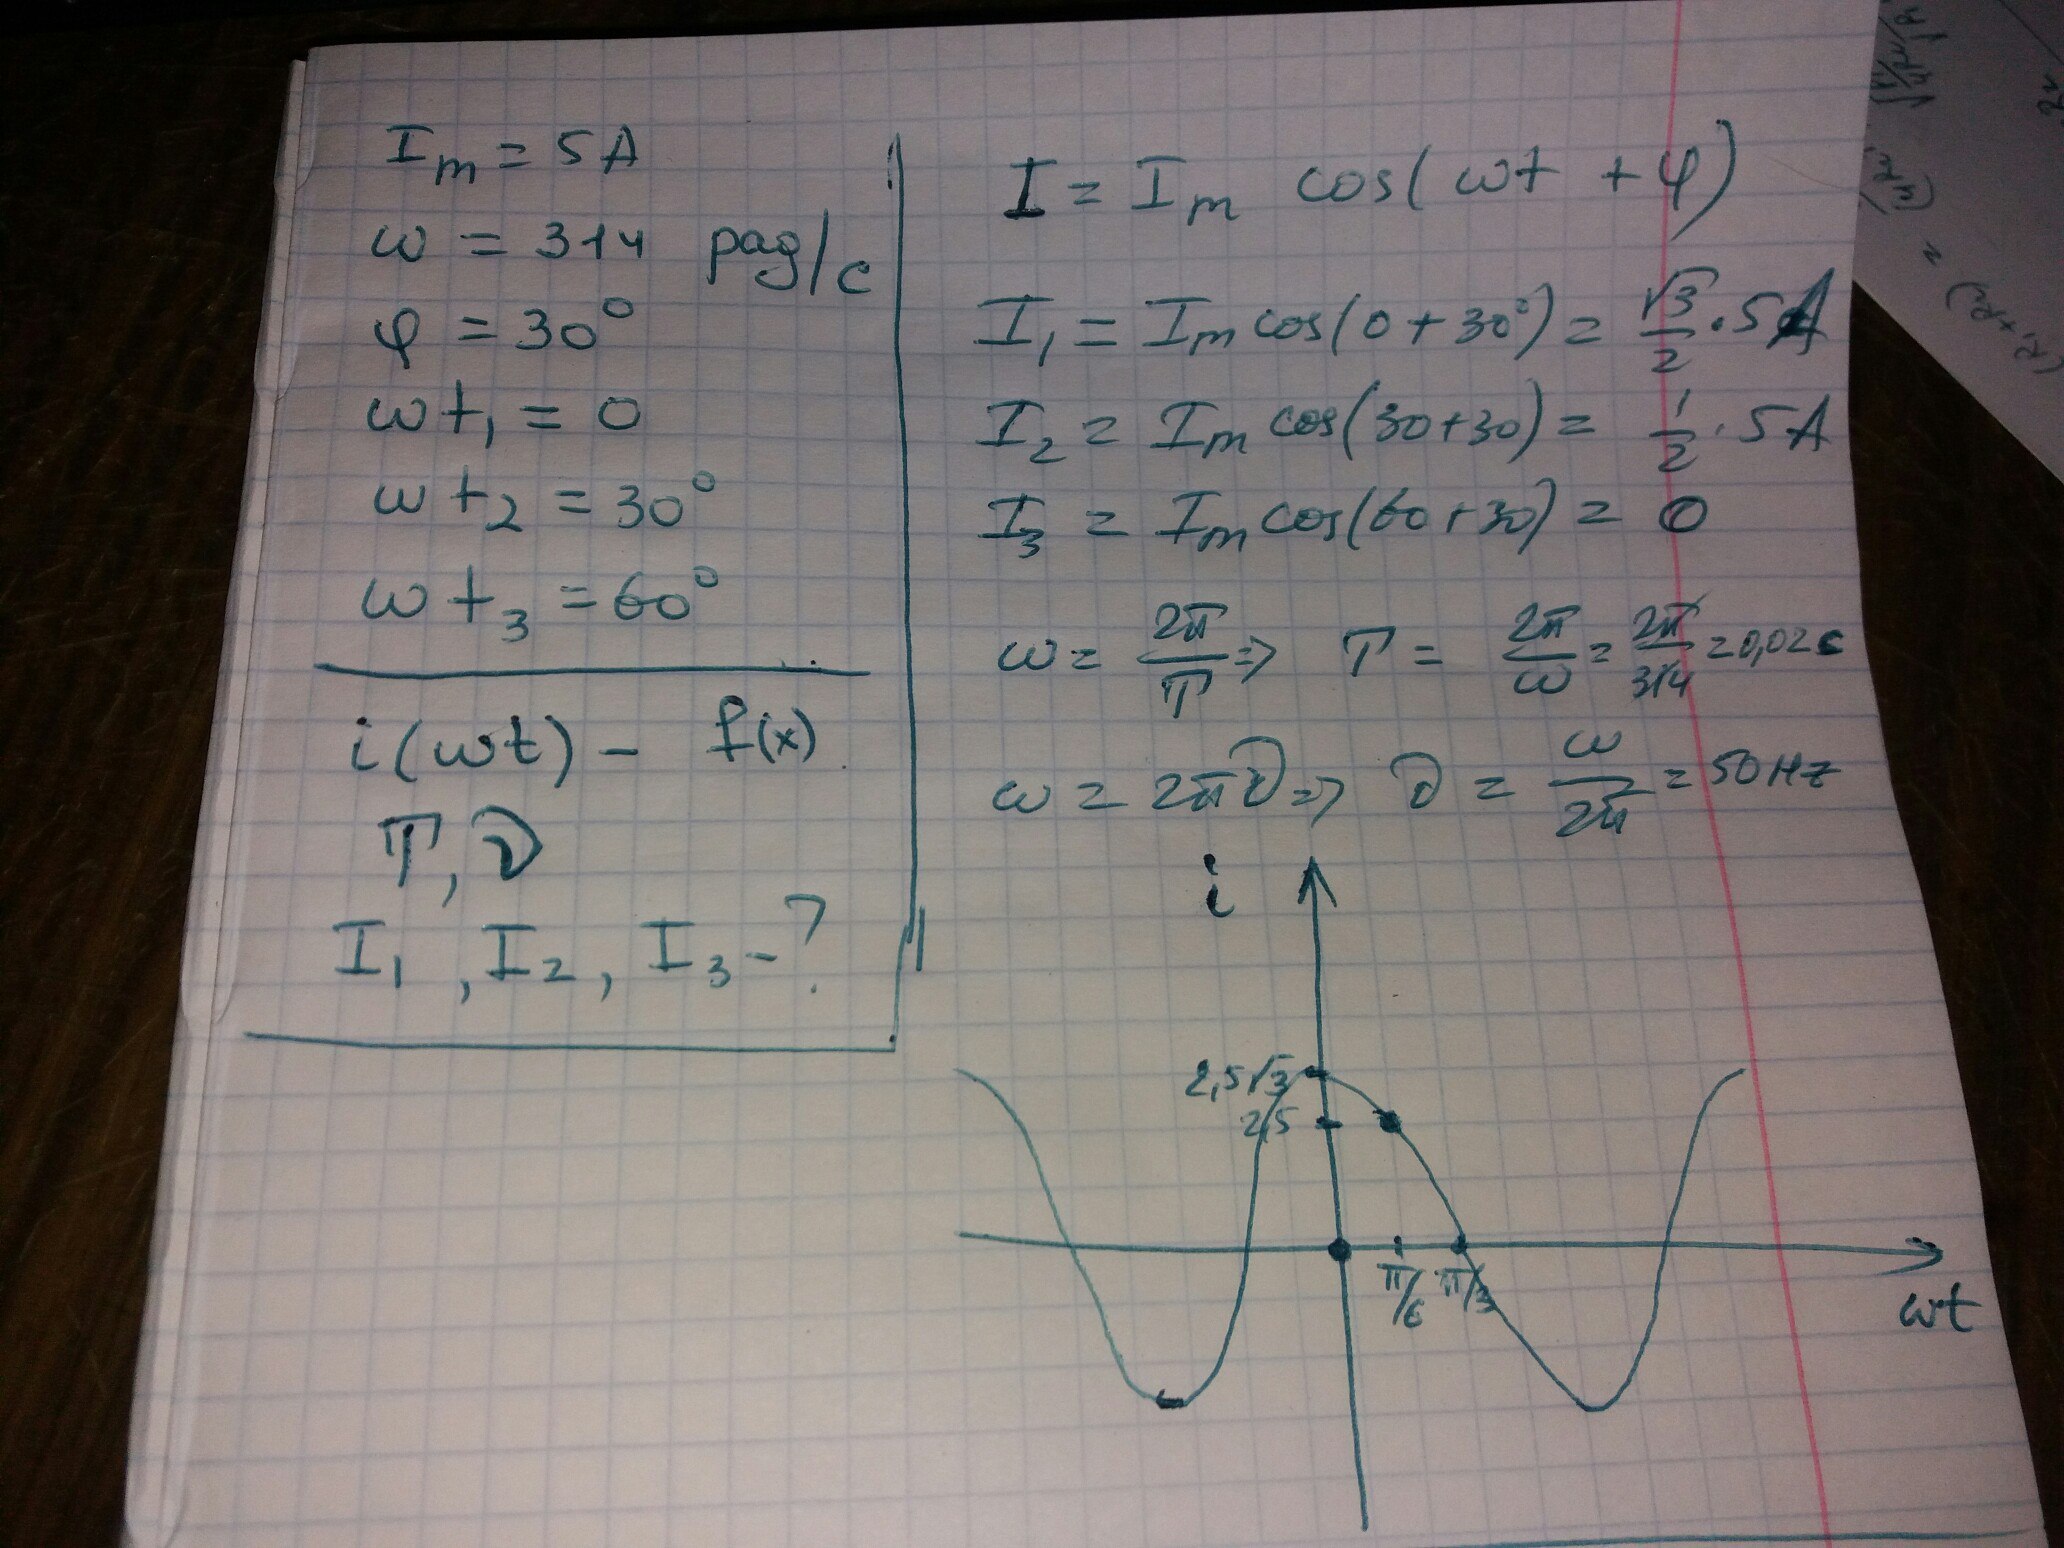 I_m = 5 А
ω = 314 рад/с
φ = 30°
ωt₁ = 0
ωt₂ = 30°
ωt₃ = 60°
i(ωt) - f(x)
T, ν
I₁, I₂, I₃ - ?
I = I_m cos(ωt + φ)
I₁ = I_m cos(0 + 30°) = √3/2 · 5 А
I₂ = I_m cos(30+30) = 1/2 · 5 А
I₃ = I_m cos(60+30) = 0
ω = 2π/T => T = 2π/ω = 2π/314 = 0,02 с
ω = 2πν => ν = ω/2π = 50 Hz
i
2,5√3
2,5
π/6 π/3
ωt